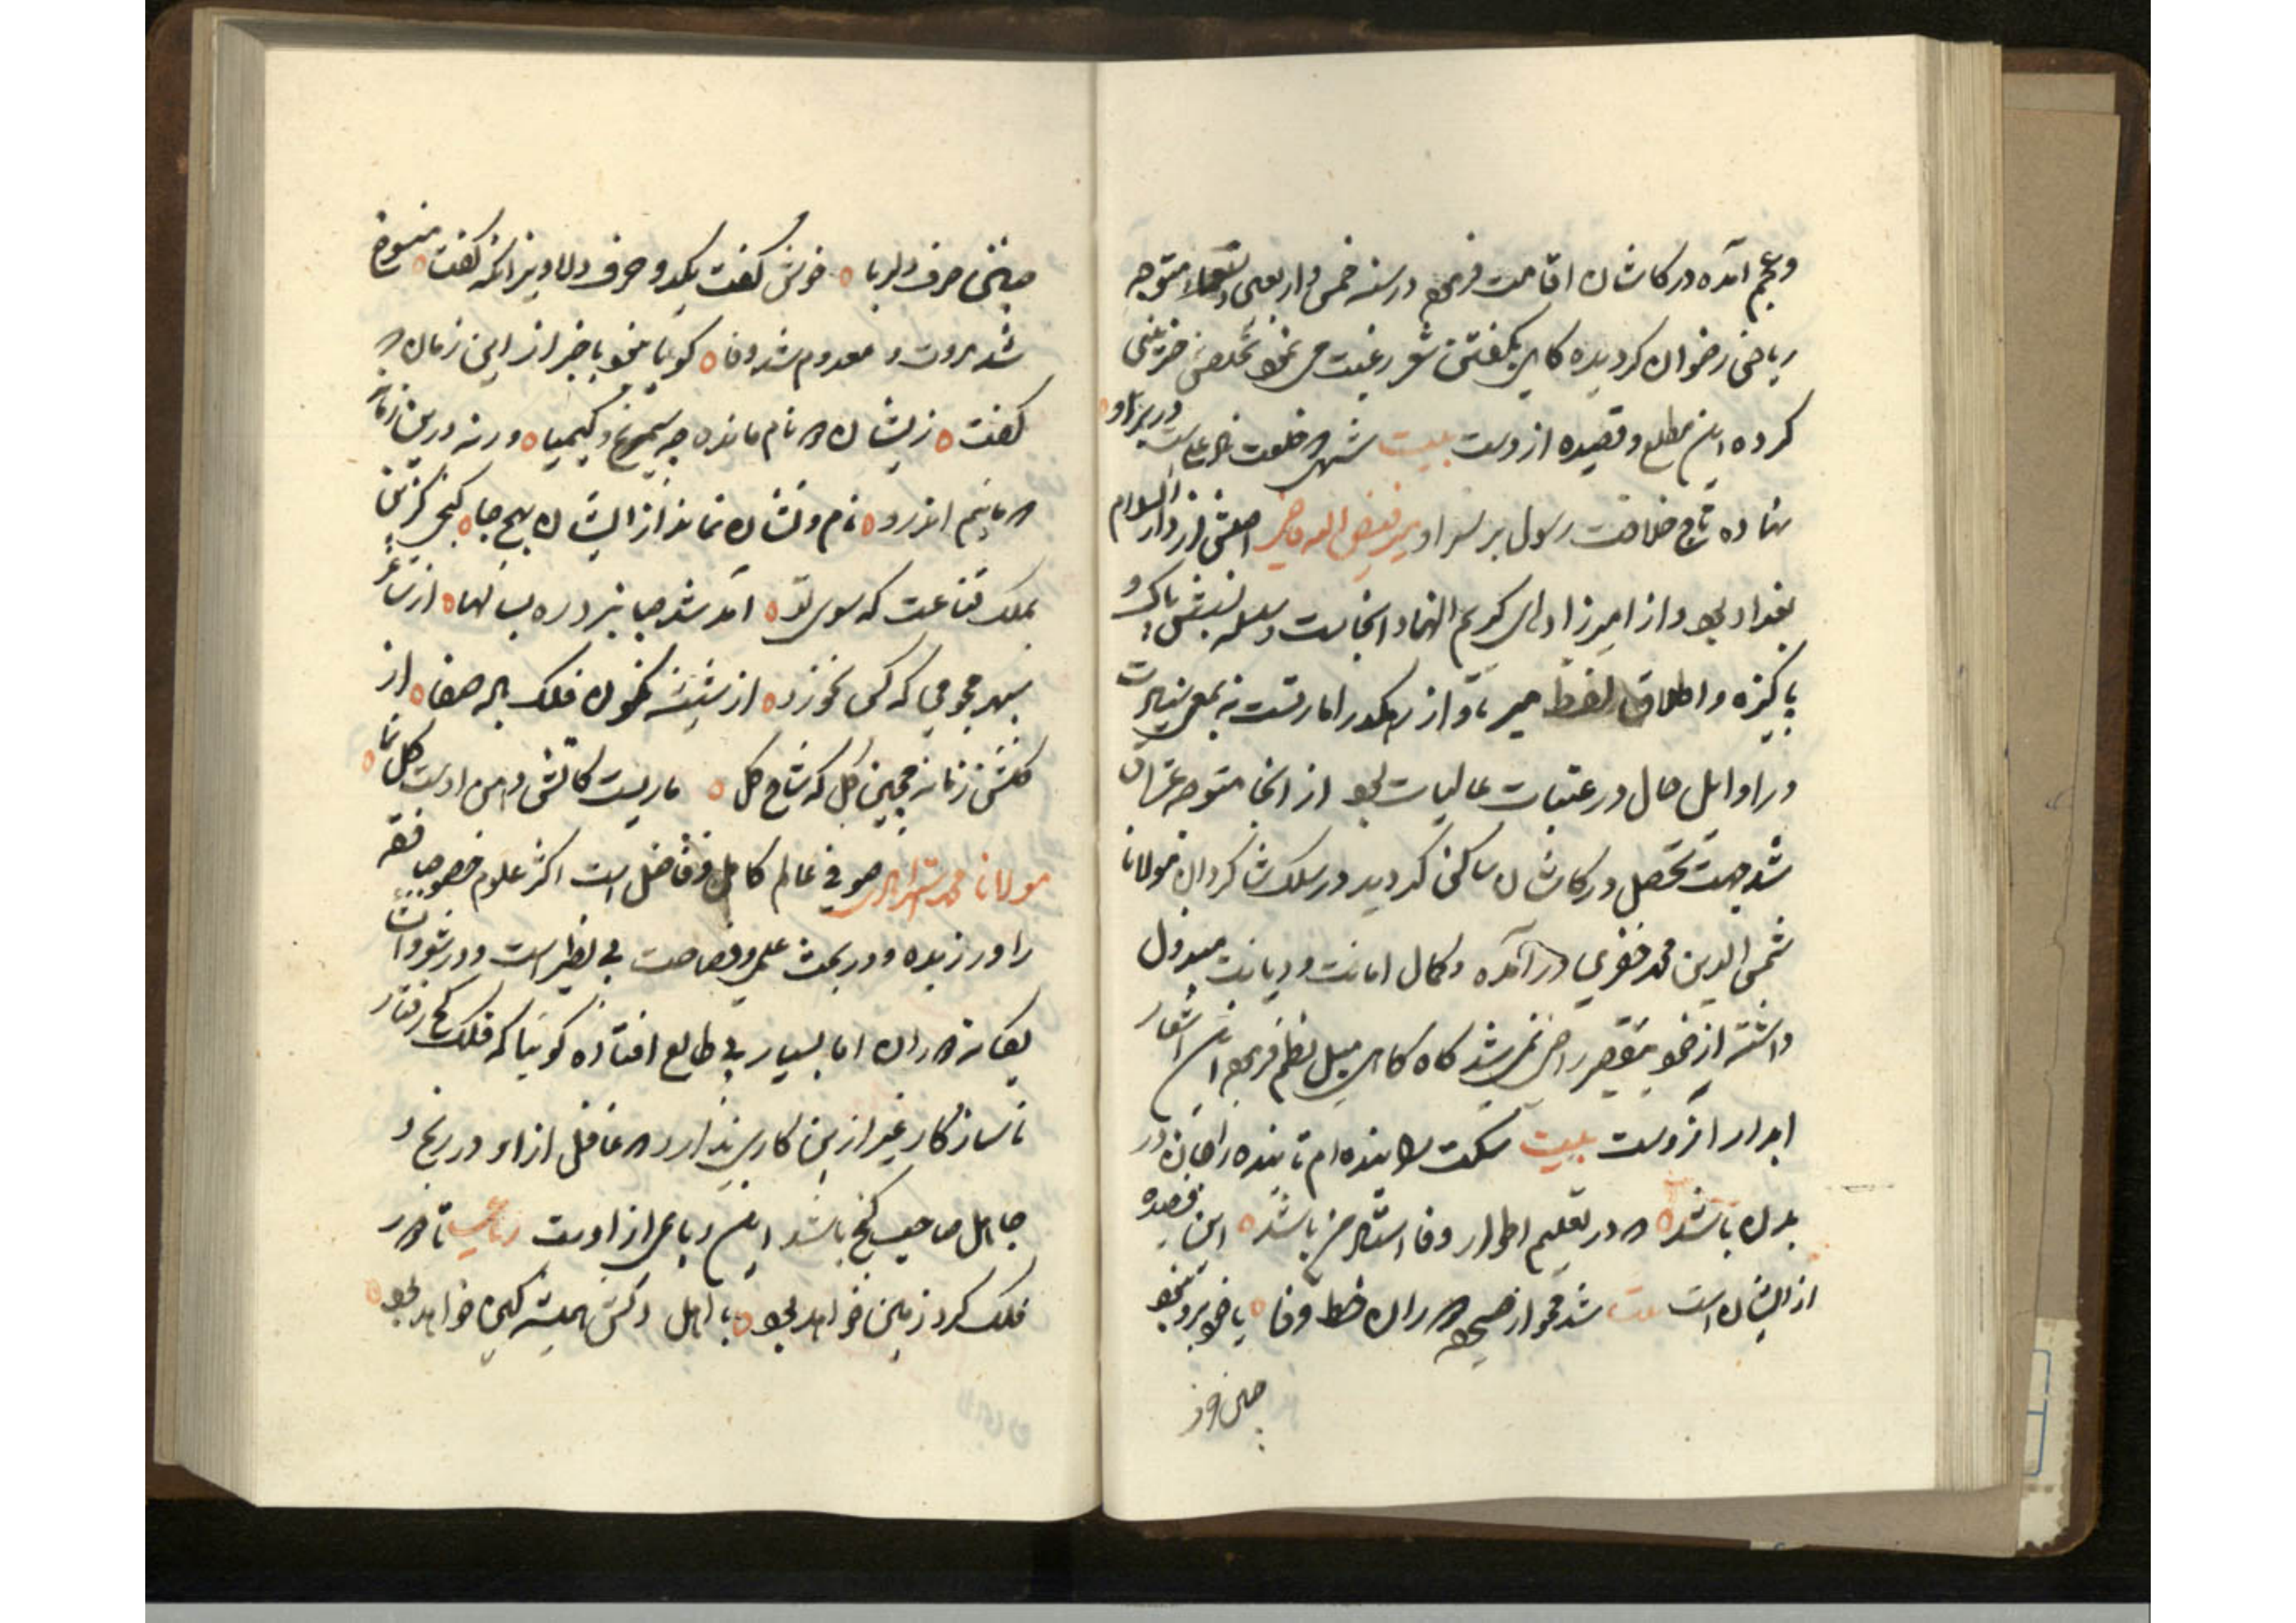 وعجم آمده در کاشان اقامت فرمود در سنه خمس و اربعین و تسعمائه متوجه
ریاض رضوان گردیده گاهی بگفتن شعر رغبت می نمود تخلص
کرده این مطلع و قصیده ازوست بیت شهی که خلعت در بر او
نهاده تاج خلافت رسول بر سر او میر فیض الله اصلش از دار السلام
بغداد بود و از امیرزادهای کریم النهاد انجاست و سلسله نسبش پاک و
پاکیزه و اطلاق لفظ میر باو از رهگذر امارتست نه بمعنی سیادت
در اوایل حال در عتبات عالیات بود از انجا متوجه عراق
شد جهت تحصیل در کاشان ساکن گردید در سلک شاگردان مولانا
شمس الدین محمد خفری در آمده و کمال امانت و دیانت مبذول
داشته از خود بتقصیر راضی نمی شد گاه گاهی میل نظم فرمود این اشعار
ابدار ازوست بیت سکت را بنده ام تا بنده را جان در
بدن باشد که در تعلیم اطوار وفا استاد من باشد این قصیده
از ایشان است بیت شد محو از صحیفه دوران خط وفا یا خود نبود
حرف دلربا خوش گفت یکدو حرف دلاویز انکه گفت منسوخ
شد مروت و معدوم شد وفا گویا نبود با خبر از این زمان که
گفت زیشان که نام مانده چو سیمرغ و کیمیا ورنه درین زمانه
که مائیم اندرو نام و نشان نماند از ایشان بهیچ جا کنجی گزین
بملک قناعت که سوی تو آمد شد صبا نبرد ره بسالها از ساغر
سپهر مجو می که کس نخورد از شیشه نگون فلک باده صفا از
گلشن زمانه مچین گل که شاخ گل ماریست کاتش دهن اوست گل نما
مولانا محمد صوفی عالم کامل و فاضل است اکثر علوم خصوصا فقه
را ورزیده و در بحث علمی و فصاحت بی نظیر است و در شعر و انشا
یگانه دوران اما بسیار بی طالع افتاده گویا که فلک کج رفتار
ناسازگار غیر ازین کاری ندارد که عاقل ازاو در رنج و
جاهل صاحب گنج باشد این رباعی از اوست رباعی تا دور
فلک گرد زمین خواهد بود با اهل دلش همیشه کین خواهد بود